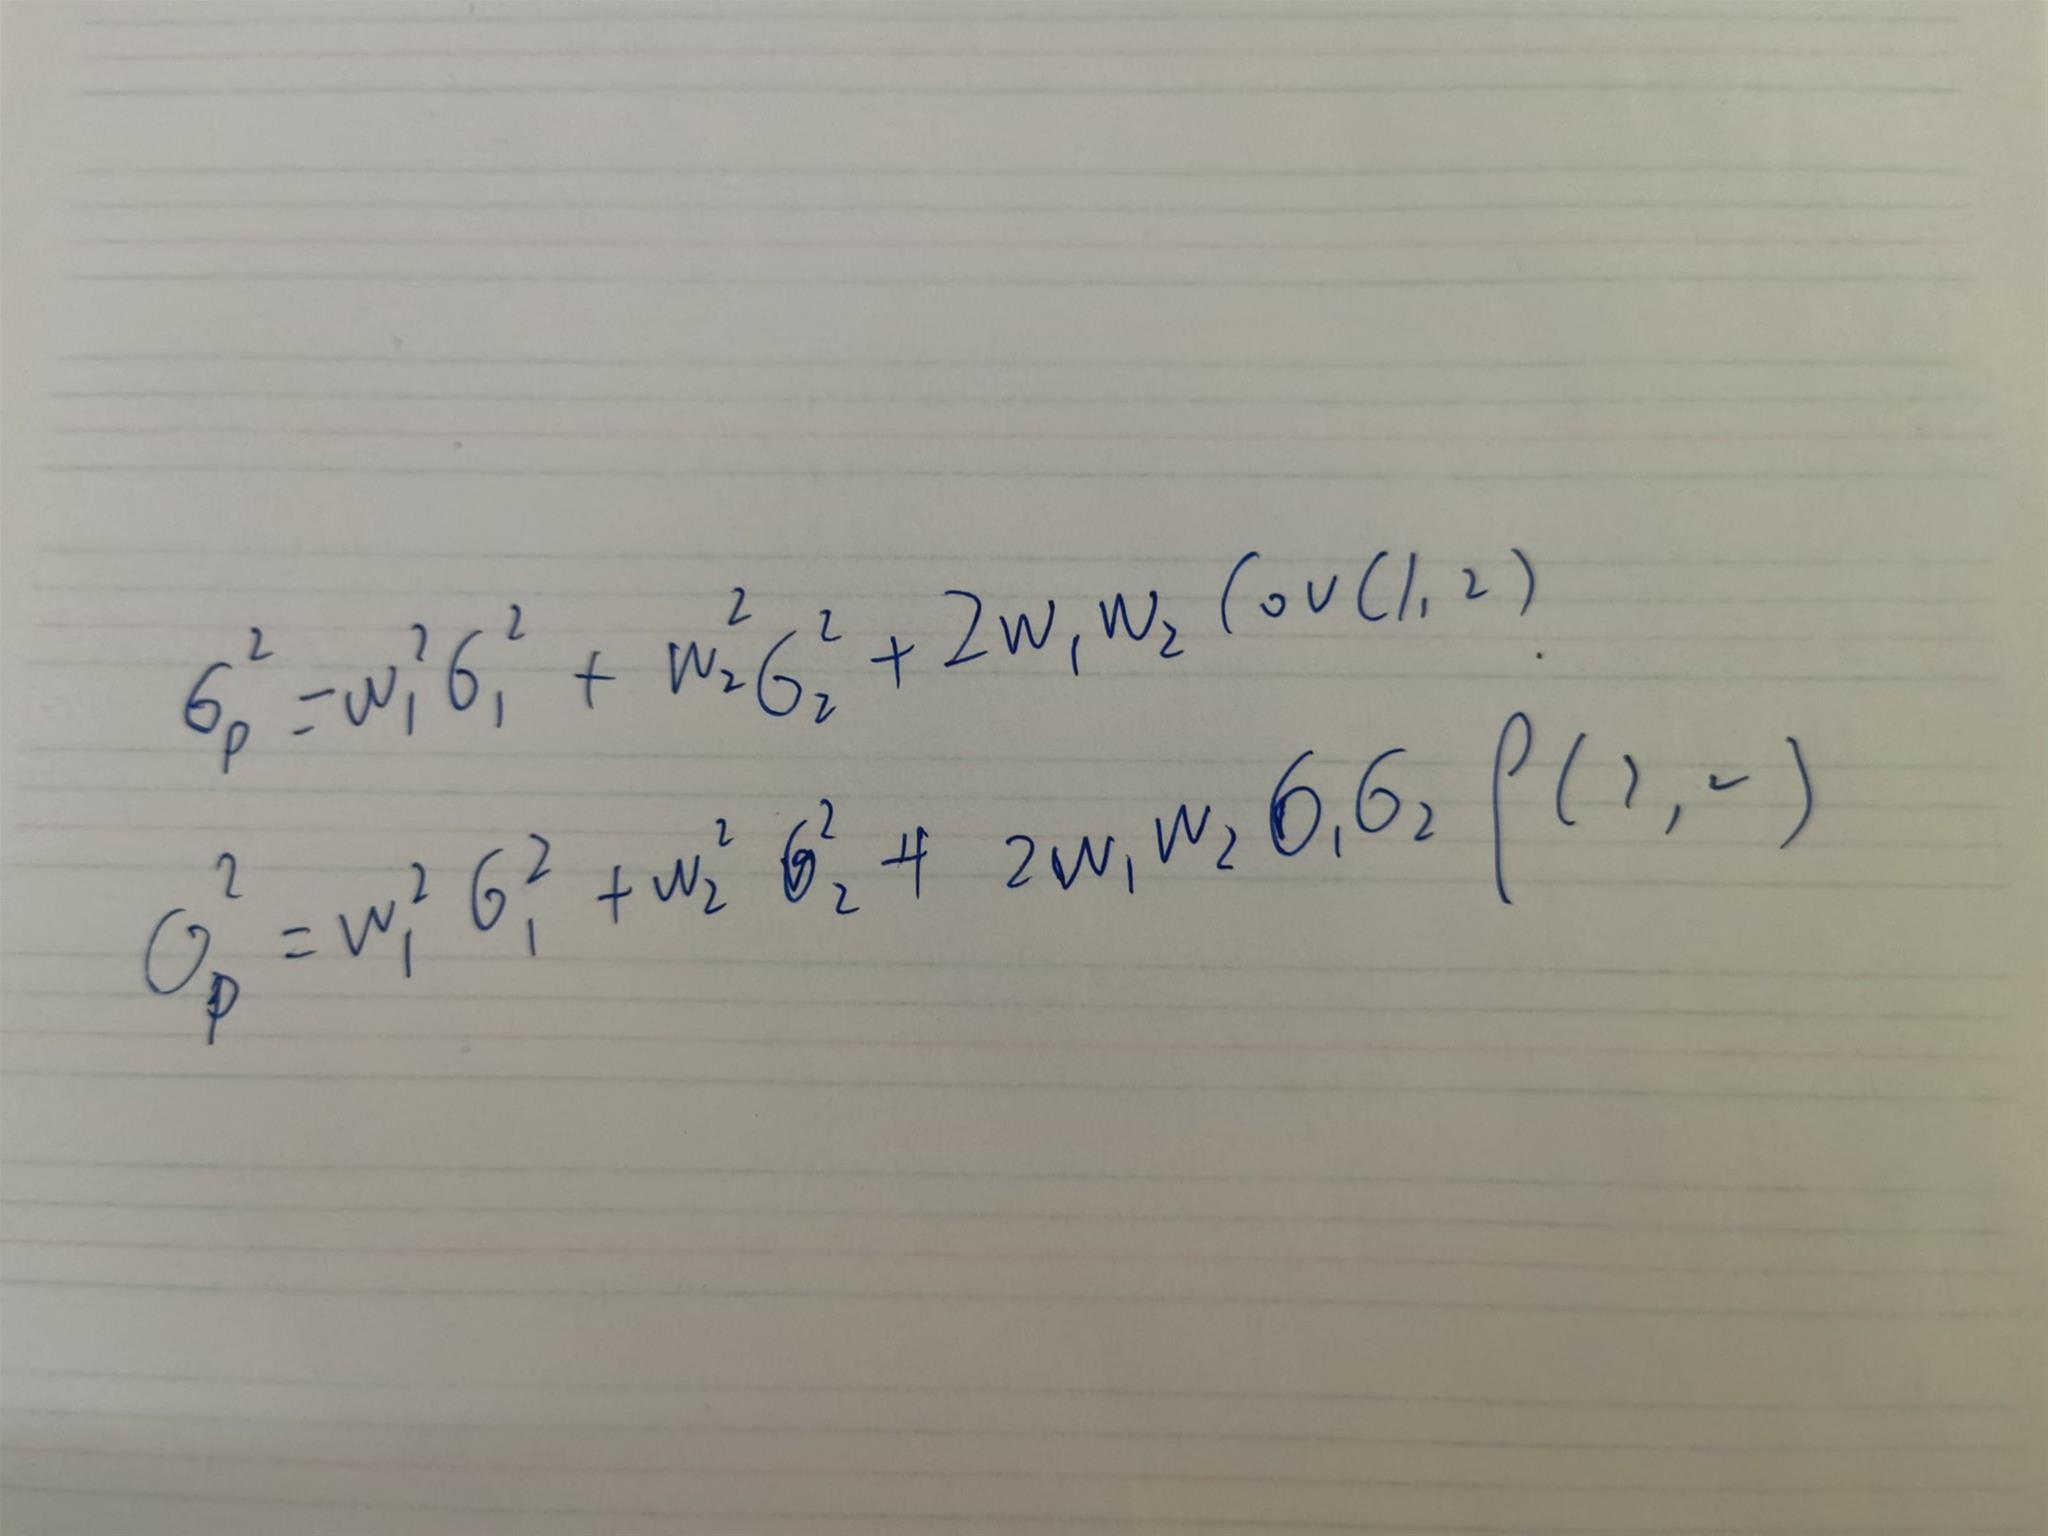 σ_p^2 = w_1^2 σ_1^2 + w_2^2 σ_2^2 + 2w_1 w_2 Cov(1,2)
σ_p^2 = w_1^2 σ_1^2 + w_2^2 σ_2^2 + 2w_1 w_2 σ_1 σ_2 ρ(1,2)